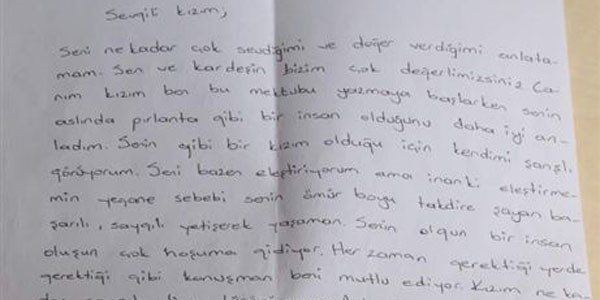 Sevgili kızım;
Seni ne kadar çok sevdiğimi ve değer verdiğimi anlata-
mam. Sen ve kardeşin bizim çok değerlimizsiniz Ca-
nım kızım ben bu mektubu yazmaya başlarken senin
aslında pırlanta gibi bir insan olduğunu daha iyi an-
ladım. Senin gibi bir kızım olduğu için kendimi şanslı
görüyorum. Seni bazen eleştiriyorum ama inanki eleştirme-
min yegane sebebi senin ömür boyu takdire şayan ba-
şarılı, saygılı yetişerek yaşaman. Senin olgun bir insan
oluşun çok hoşuma gidiyor. Her zaman gerektiği yerde
gerektiği gibi konuşman beni mutlu ediyor. Kızım ne ka-